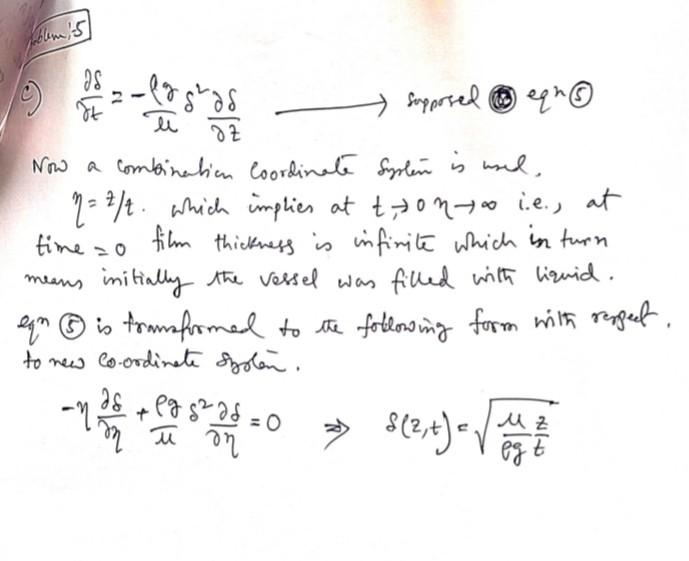 Problem:5
c) ∂δ/∂t = -ρg/μ δ² ∂δ/∂z ⟶ supposed eqn ⑤
Now a combination coordinate system is used,
η = z/t. which implies at t→0 η→∞ i.e., at
time = 0 film thickness is infinite which in turn
means initially the vessel was filled with liquid.
eqn ⑤ is transformed to the following form with respect.
to new co-ordinate system.
-η ∂δ/∂η + ρg/μ δ² ∂δ/∂η = 0 ⇒ δ(z,t) = √(μ/ρg z/t)